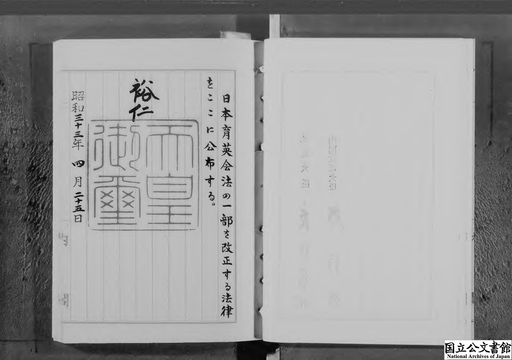 日本育英会法の一部を改正する法律
をここに公布する。
裕仁
天皇
御璽
昭和三十三年四月二十五日
国立公文書館
National Archives of Japan